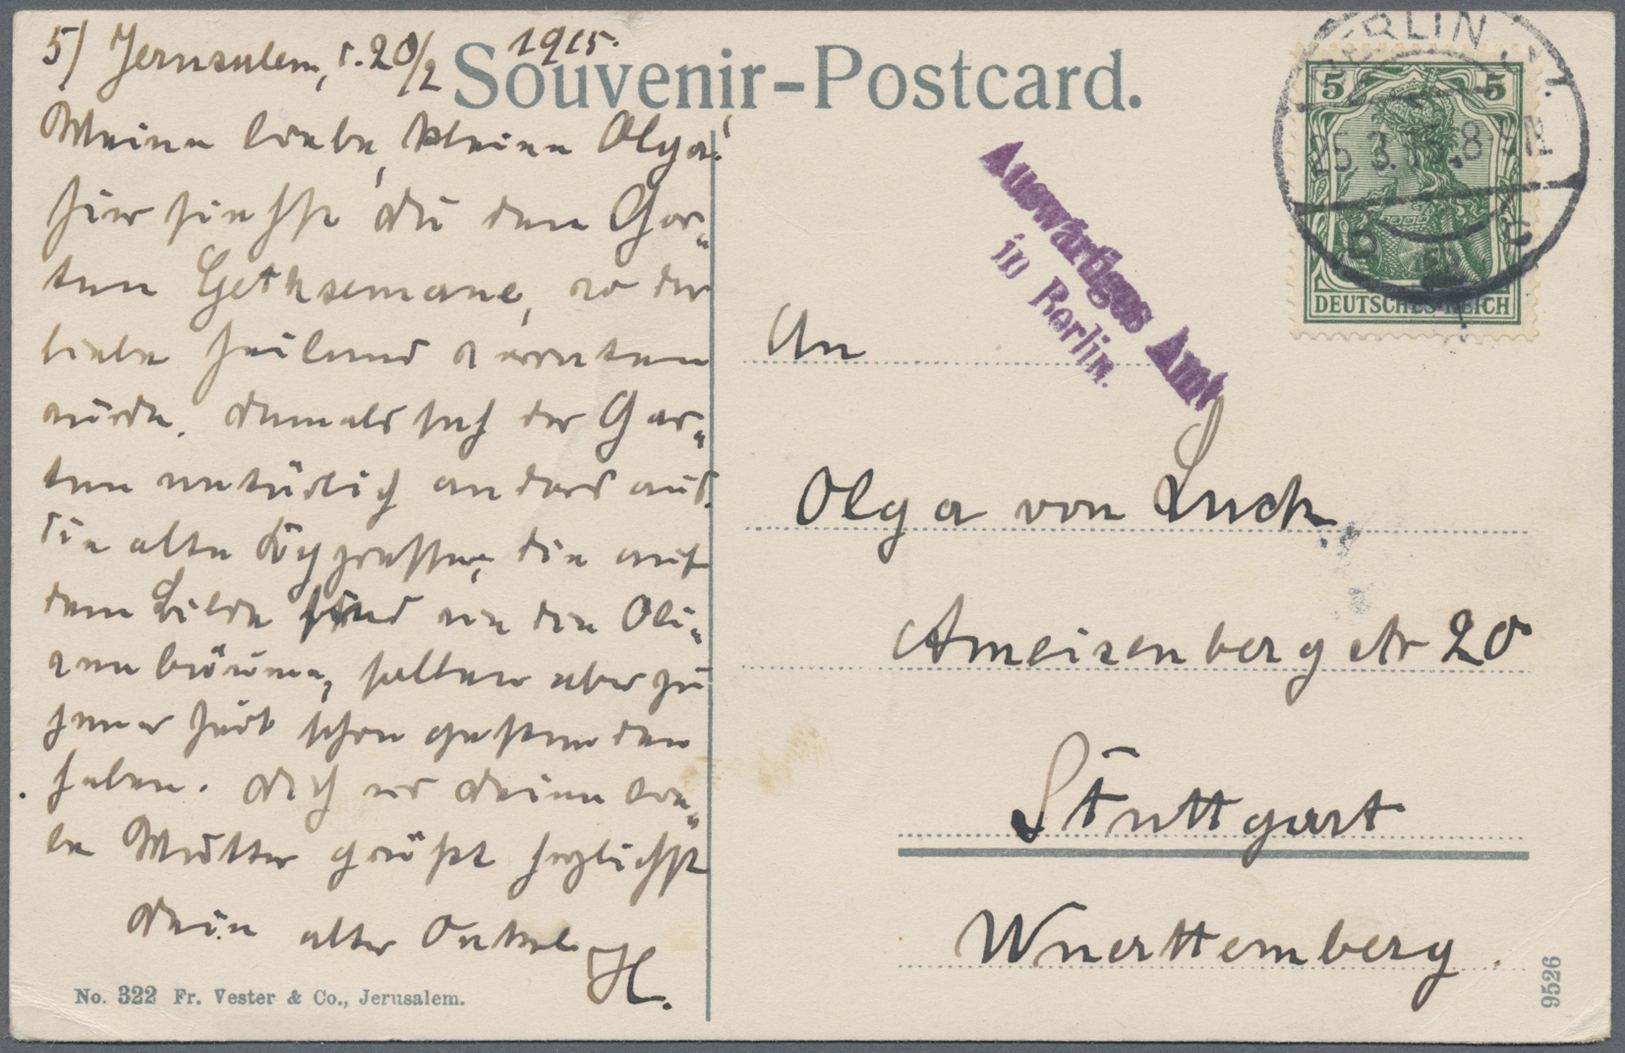 5) Jerusalem, d. 20/2 1915.
Souvenir-Postcard.
Meine liebe, kleine Olga!
hier siehst Du den Gar-
ten Gethsemane, wo der
liebe Heiland verraten
wurde. Damals sah der Gar-
ten natürlich anders aus.
die alten Cypressen, die auf
dem Bilde sind wie die Oli-
venbäume, sollen aber zu
jener Zeit schon gestanden
haben. Dich und Deine lie-
be Mutter grüßt herzlichst
Dein alter Onkel
H.
No. 322 Fr. Vester & Co., Jerusalem.
Auswärtiges Amt
in Berlin.
BERLIN
5 5
DEUTSCHES REICH
An
Olga von Luck
Ameisenbergstr 20
Stuttgart
Wuerttemberg.
9526